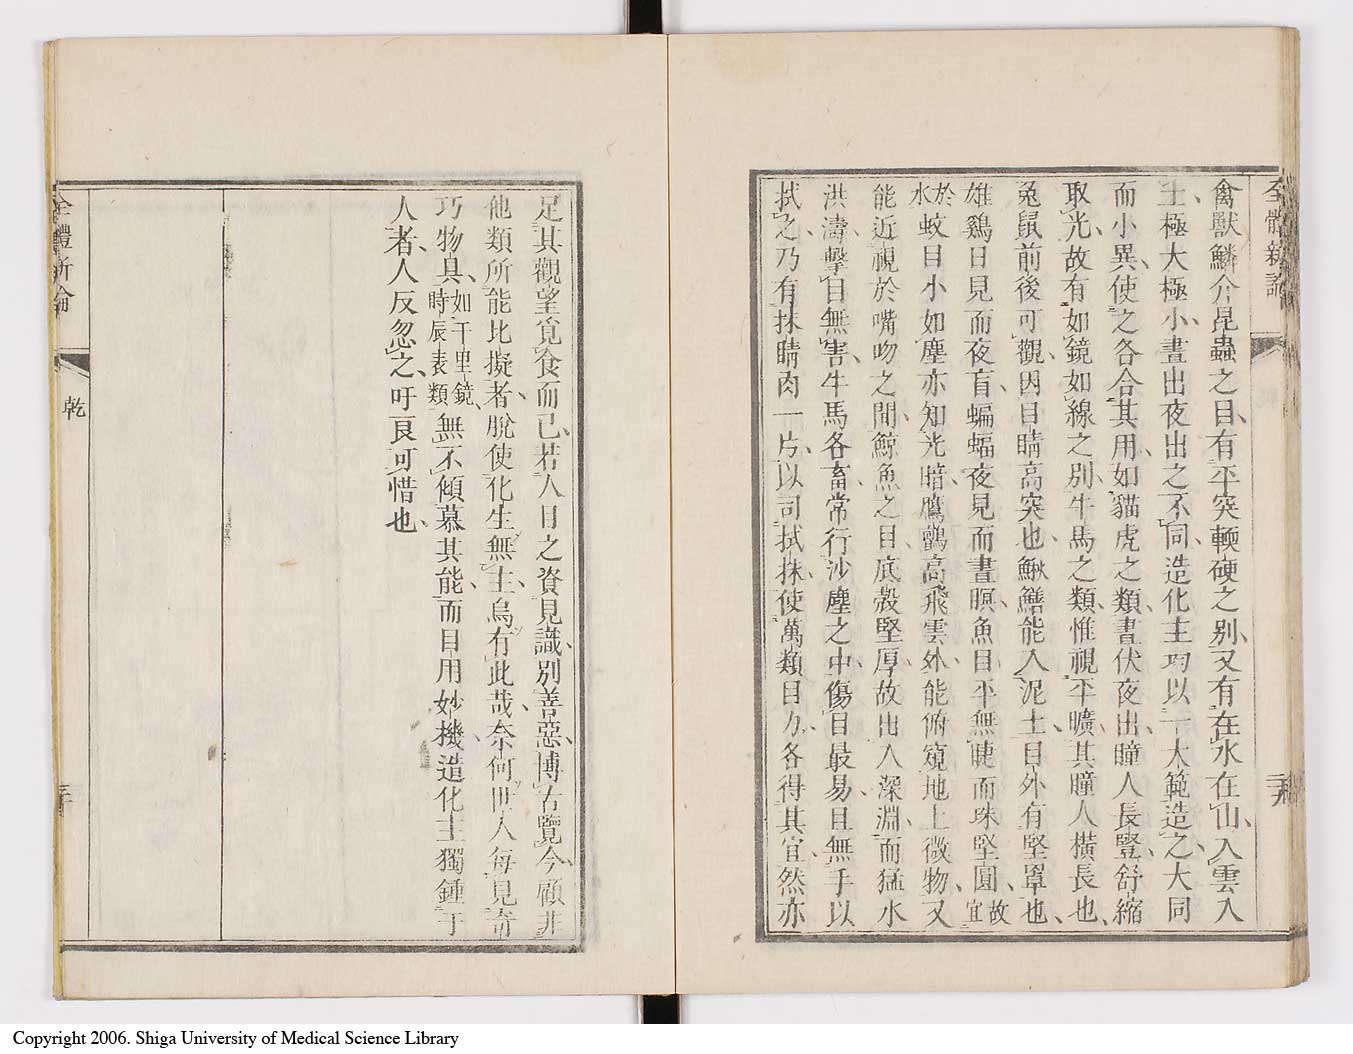 全體新論
禽獸鱗介昆蟲之目有平突輭硬之别又有在水在山入雲入
土極大極小晝出夜出之不同造化主乃以一大範造之大同
而小異使之各合其用如貓虎之類晝伏夜出瞳人長豎舒縮
取光故有如鏡如線之别牛馬之類惟視平曠其瞳人橫長也
兔鼠前後可觀因目睛高突也鰍鱔能入泥土目外有堅罩也
雄鷄日見而夜盲蝙蝠夜見而晝暝魚目平無睫而珠堅圓故宜
於水蚊目小如塵亦知光暗鷹鸇高飛雲外能俯窺地上微物又
能近視於嘴吻之間鯨魚之目底殼堅厚故出入深淵而猛水
洪濤擊目無害牛馬各畜常行沙塵之中傷目最易且無手以
拭之乃有抹睛肉一片以司拭抹使萬類目力各得其宜然亦
足其觀望覓食而已若人目之資見識别善惡博古覽今顧非
他類所能比擬者脫使化生無主烏有此哉奈何世人每見奇
巧物具如千里鏡時辰表類無不傾慕其能而目用妙機造化主獨鍾于
人者人反忽之吁良可惜也
全體新論
乾
三十
Copyright 2006. Shiga University of Medical Science Library